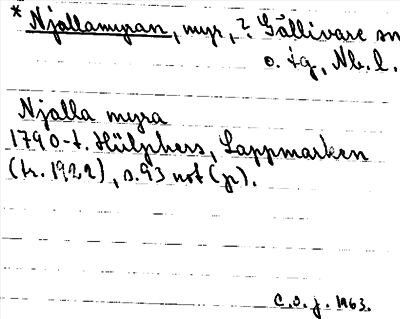 * Njallamyran, myr, ? Gällivare sn
o. tg, Nb. l.
Njalla myra
1790-t. Hülphers, Lappmarken
(tr. 1922), s. 93 not (jr).
C.O.J. 1963.